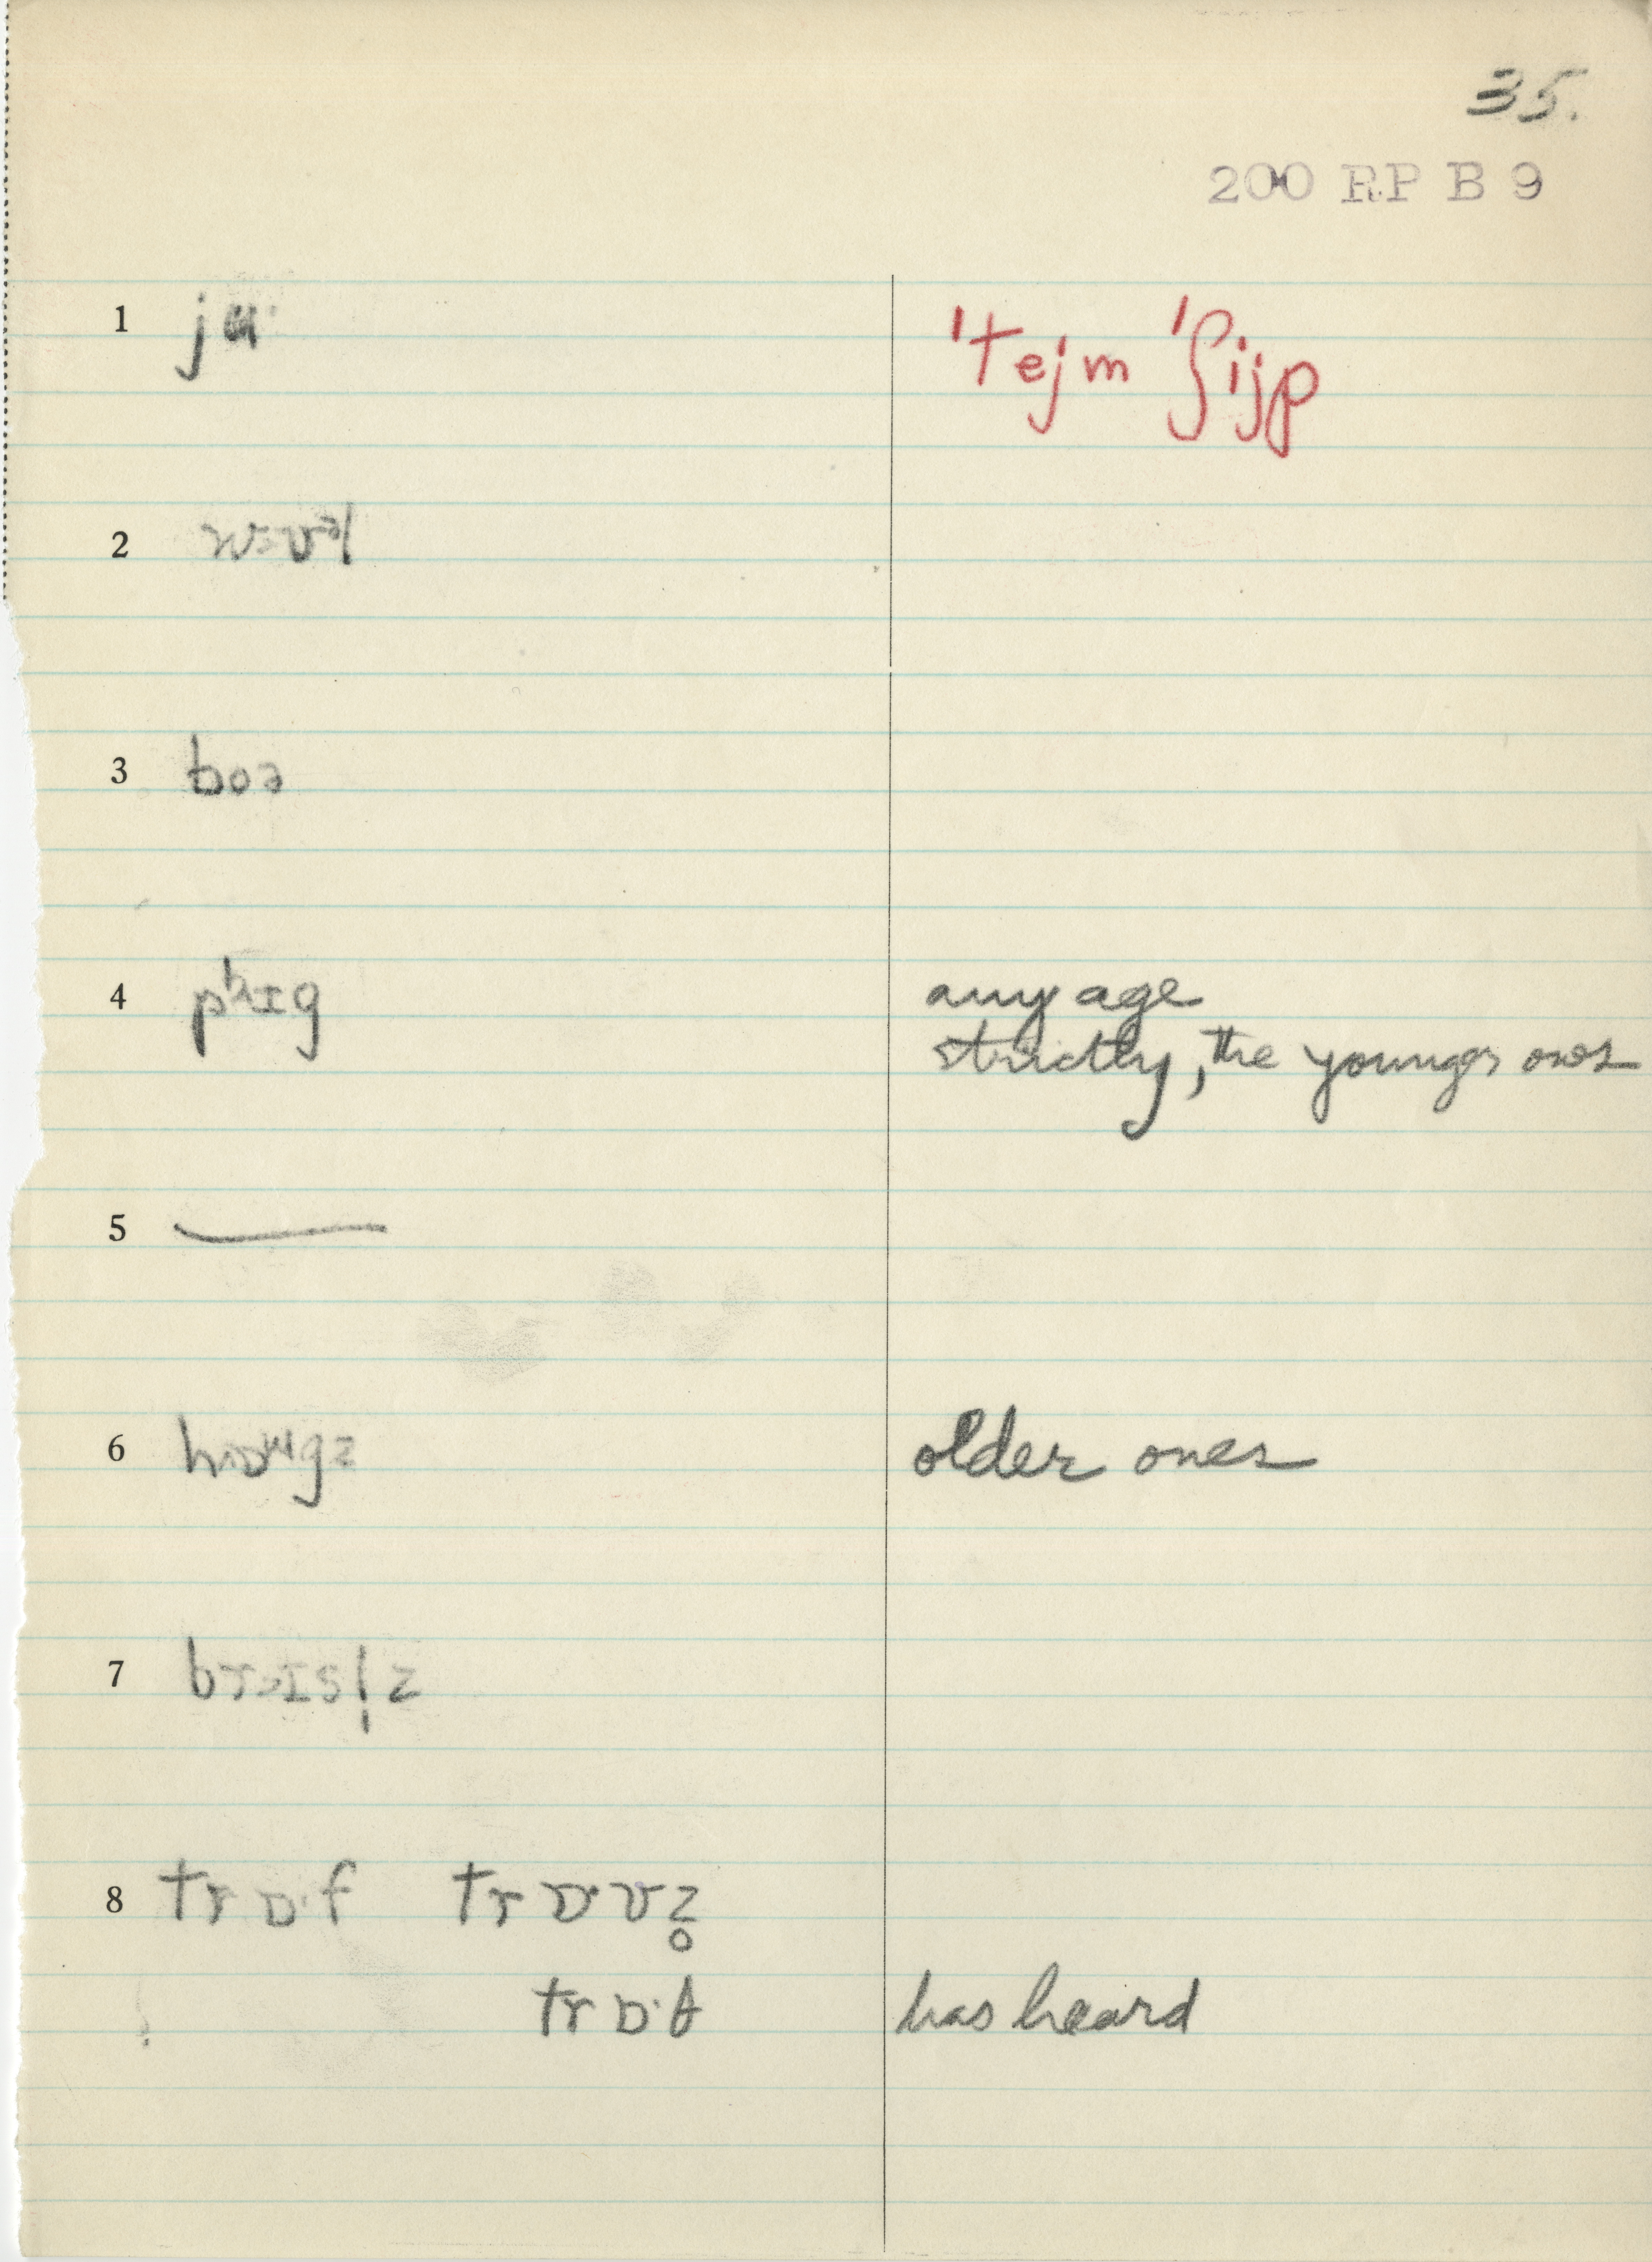 35.
200 RP B 9
1 jʉ· ˈtejm ˈʃijp
3 boə
4 pʰɪg any age
strictly, the younger ones
5 —
6 older ones
7
8 trɒ·f trɒ·vz̥
trɒ·t has heard